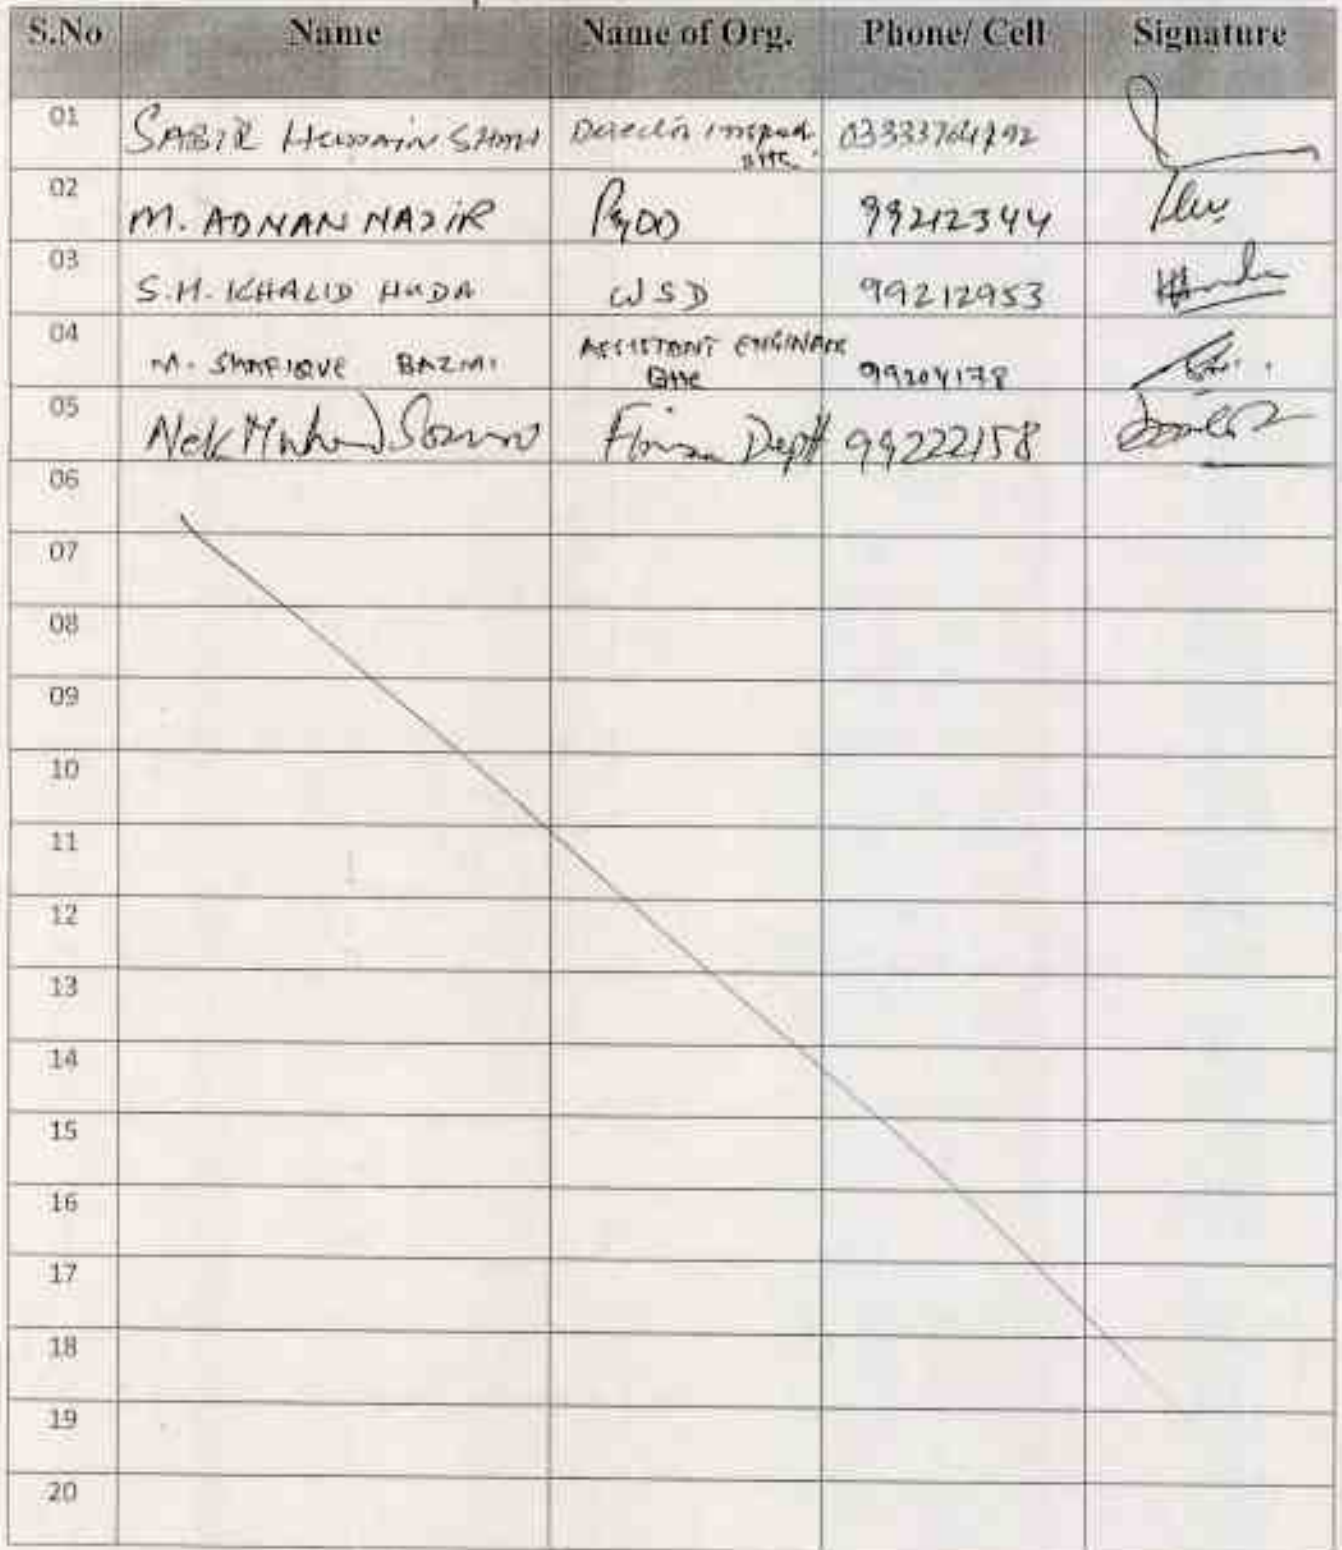 S.No Name Name of Org. Phone/ Cell Signature
01 SABIR HUSSAIN SHAH
02 M. ADNAN NAZIR 99212344
03 S.H. KHALID HUDA WSD 99212953
04 M. SHAFIQUE BAZMI ASSISTANT ENGINEER 99204178
05 Nek Muhd Soomro Dept 99222158
06
07
08
09
10
11
12
13
14
15
16
17
18
19
20